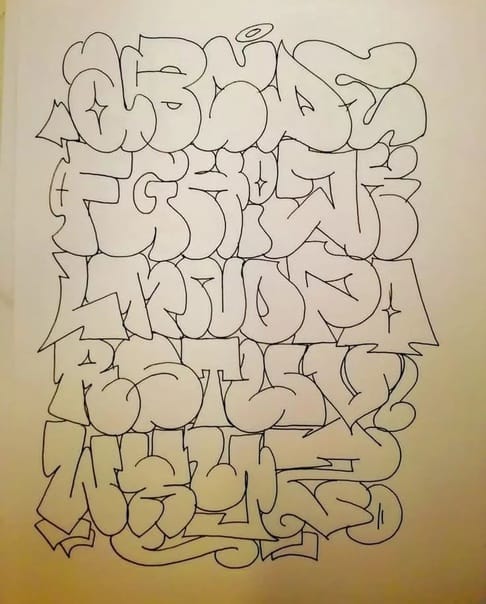 ABCDE
FGHiJK
LMNOPQ
RSTUV
WXYZ